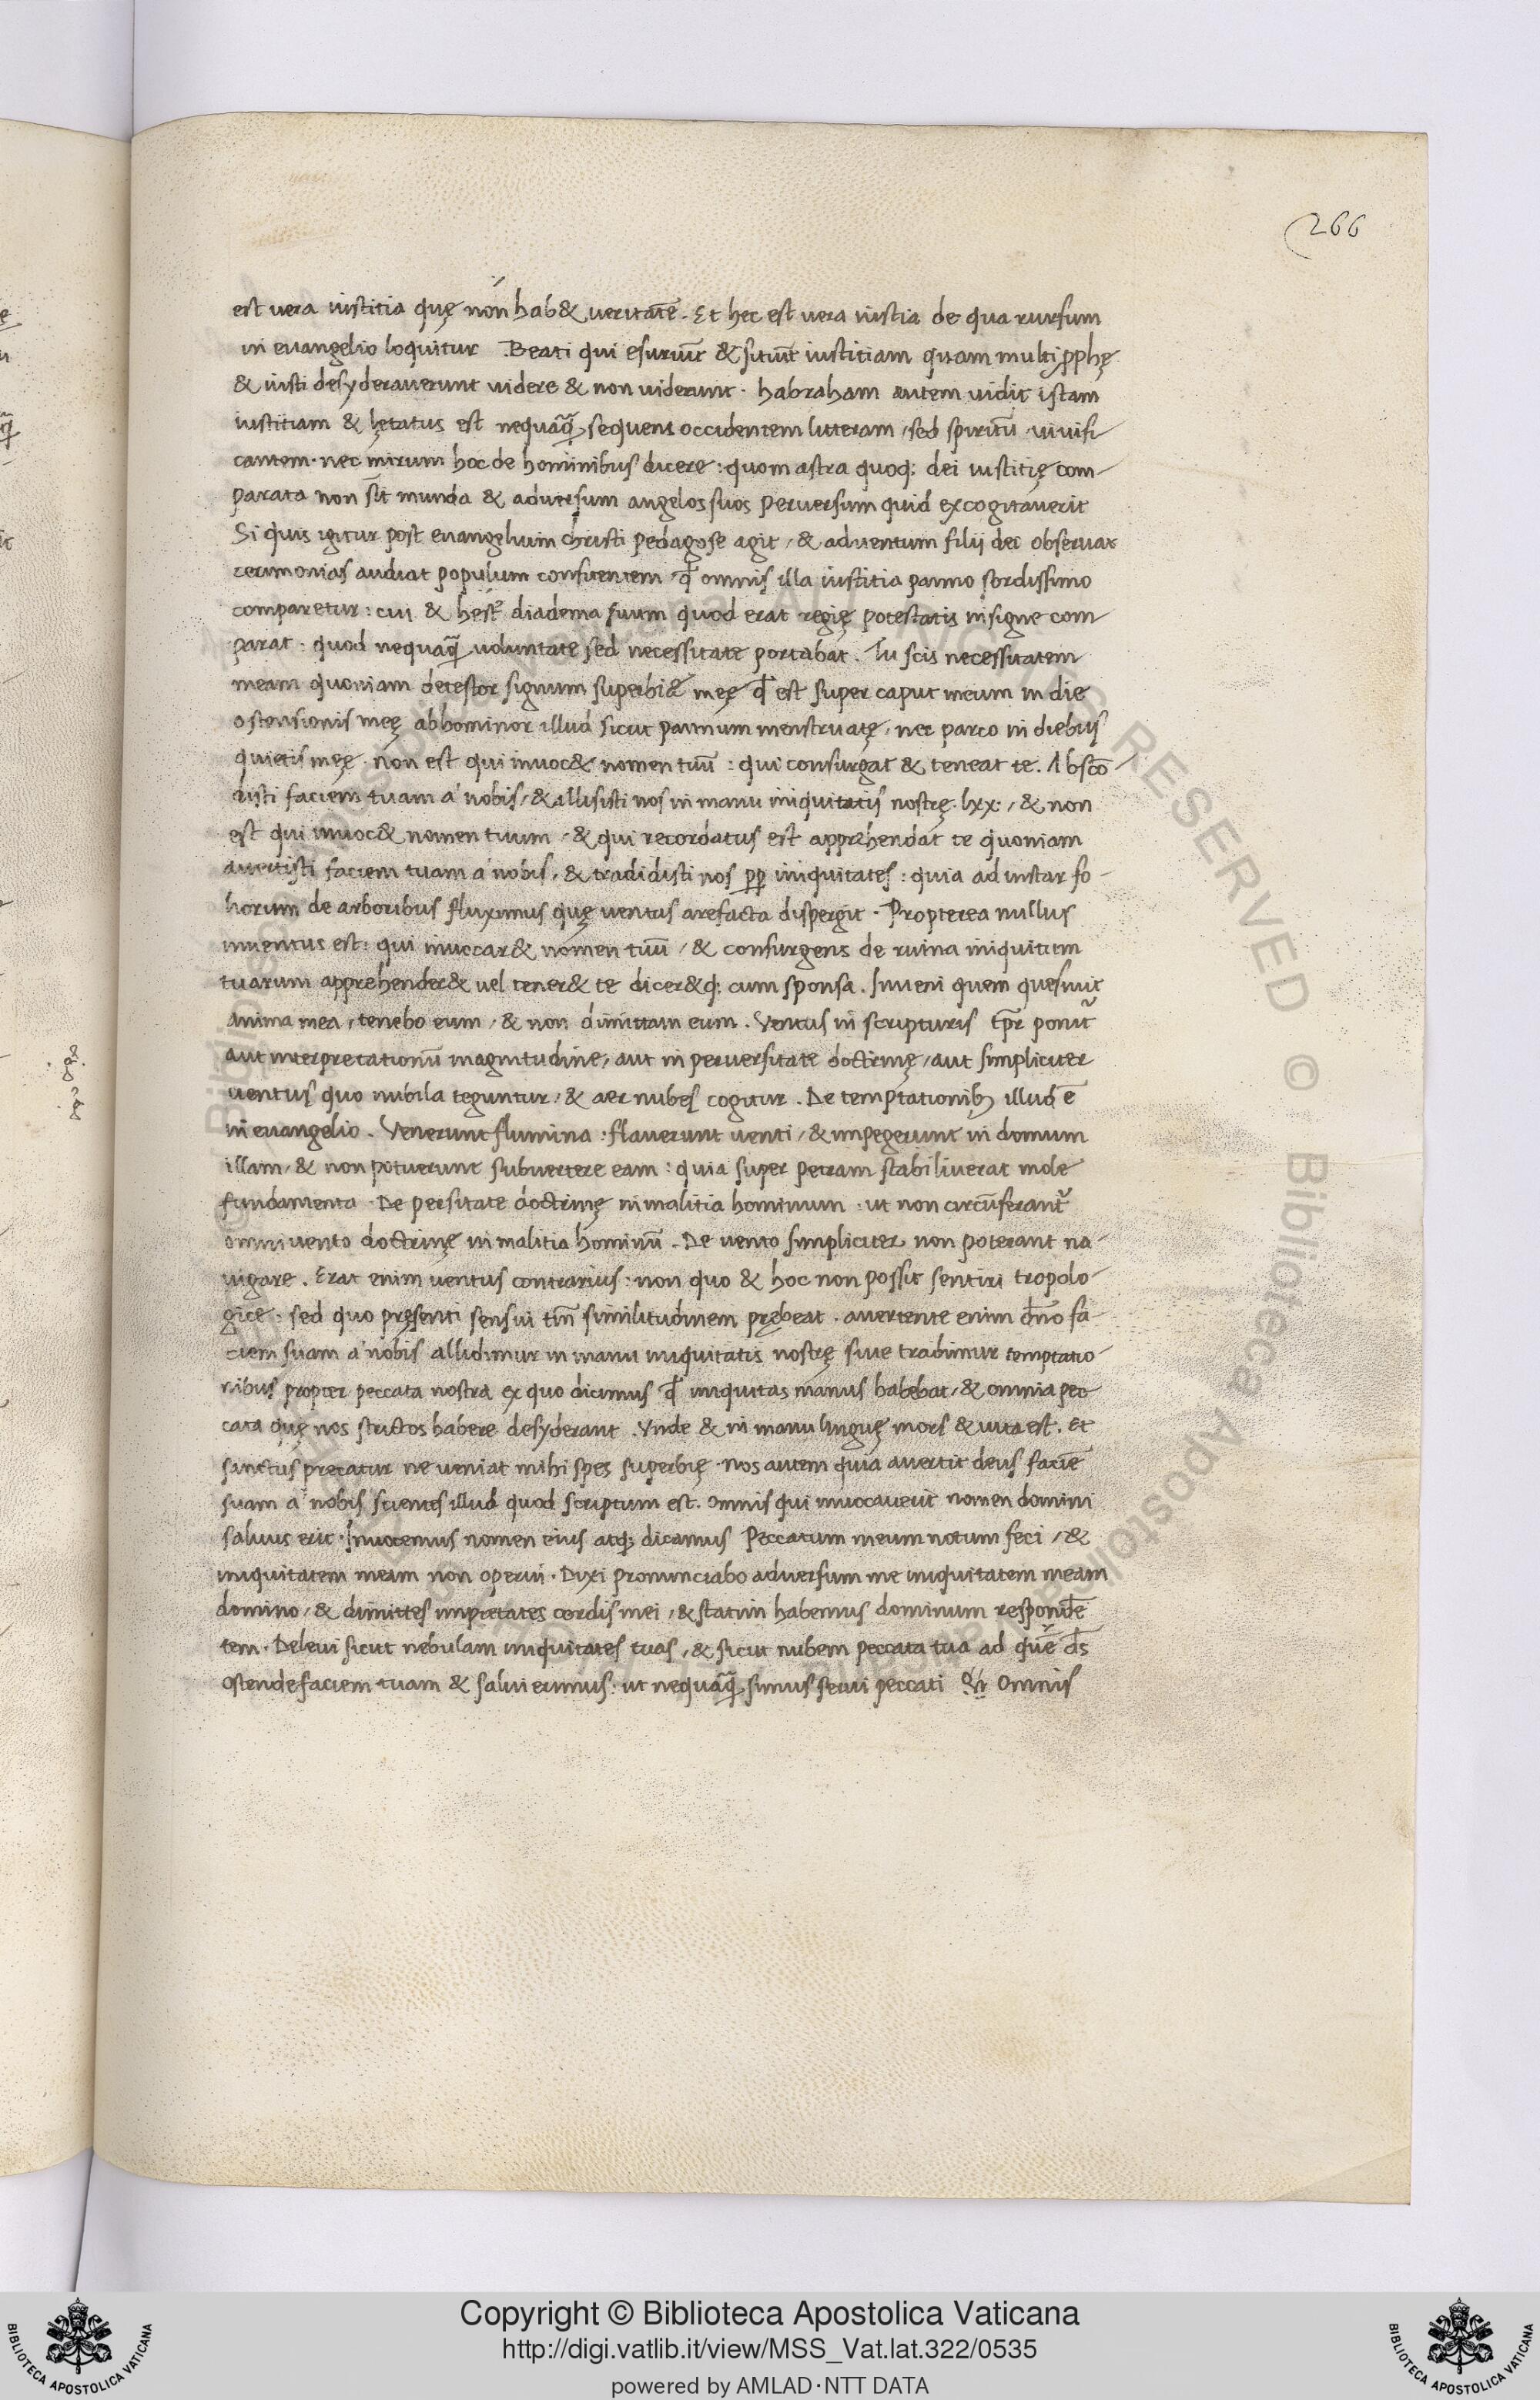 266
est vera iustitia quę non hab& veritatē. Et hec est vera iustia de qua rursum
in evangelio loquitur Beati qui esuriūt & sitiūt iustitiam quam multi ꝓphę
& iusti desyderaverunt videre & non viderunt. habraham autem vidit istam
iustitiam & lętatus est nequaq̃ sequens occidentem litteram / sed spiritū vivifi
cantem. nec mirum hoc de hominibus dicere: quom astra quoq; dei iustitię com-
parata non sīt munda & adversum angelos suos perversum quid excogitaverit
Si quis igitur post evangelium christi pedagose agit / & adventum filij dei observat
cerimonias audiat populum confitentem ꝙ omnis illa iustitia panno sordissimo
comparetur: cui & hest² diadema suum quod erat regię potestatis insigne com
parat: quod nequaq̃ voluntate sed necessitate portabat. Tu scis necessitatem
meam quoniam detestor signum superbiæ męę ꝙ est super caput meum in die
ostensionis męę abbominor illud sicut pannum menstruatę / nec parco in diebus
quietis męę. non est qui invoc& nomen tuū: qui consurgat & teneat te. Abscō
disti faciem tuam a nobis / & allisisti nos in manu iniquitatis nostrę. lxx. / & non
est qui invoc& nomen tuum / & qui recordatus est apprehendat te quoniam
avertisti faciem tuam a nobis / & tradidisti nos ꝓp iniquitates: quia ad instar fo-
liorum de arboribus fluximus quę ventus arefacta dispergit. Propterea nullus
inventus est: qui invocar& nomen tuū / & consurgens de ruina iniquitum
tuarum apprehender& vel tener& te dicer&q; cum sponsa. Inveni quem quesivit
anima mea / tenebo eum / & non dimittam eum. Ventus in scripturis tꝑr ponit
aut interpretationū magnitudine / aut in perversitate doctrinę / aut simpliciter
ventus quo nubila teguntur / & aer nubes cogitur. De temptationib; illud ē
in evangelio. Venerunt flumina: flaverunt venti / & impegerunt in domum
illam / & non potuerunt subvertere eam: quia super petram stabiliverat mole
fundamenta. De persitate doctrinę in malitia hominum. ut non circūferant̃
omni vento doctrinę in malitia hominū. De vento simpliciter non poterant na-
vigare. Erat enim ventus contrarius: non quo & hoc non possit sentiri tropolo-
gice: sed quo pręsenti sensui tm̄ similitudinem prębeat. avertente enim dño fa-
ciem suam a nobis allidimur in manu iniquitatis nostrę sive tradimur temptatio-
nibus propter peccata nostra ex quo dicimus ꝙ iniquitas manus habebat / & omnia pec-
cata quę nos strictos habere desyderant. Vnde & in manu linguę mors & vita est. Et
sanctus precatur ne veniat mihi spes superbię. nos autem quia avertit deus faciē
suam a nobis scientes illud quod scriptum est. omnis qui invocaverit nomen domini
salvus erit. Invocemus nomen eius atq; dicamus Peccatum meum notum feci / &
iniquitatem meam non operui. Dixi pronunciabo adversum me iniquitatem meam
domino / & dimittes impietates cordis mei / & statim habemus dominum respondē
tem. Delevi sicut nebulam iniquitates tuas / & sicut nubem peccata tua ad quē ds̄
ostende faciem tuam & salvi erimus: ut nequaq̃ simus servi peccati Omnis
Copyright © Biblioteca Apostolica Vaticana
http://digi.vatlib.it/view/MSS_Vat.lat.322/0535
powered by AMLAD·NTT DATA
BIBLIOTECA APOSTOLICA VATICANA
BIBLIOTECA APOSTOLICA VATICANA